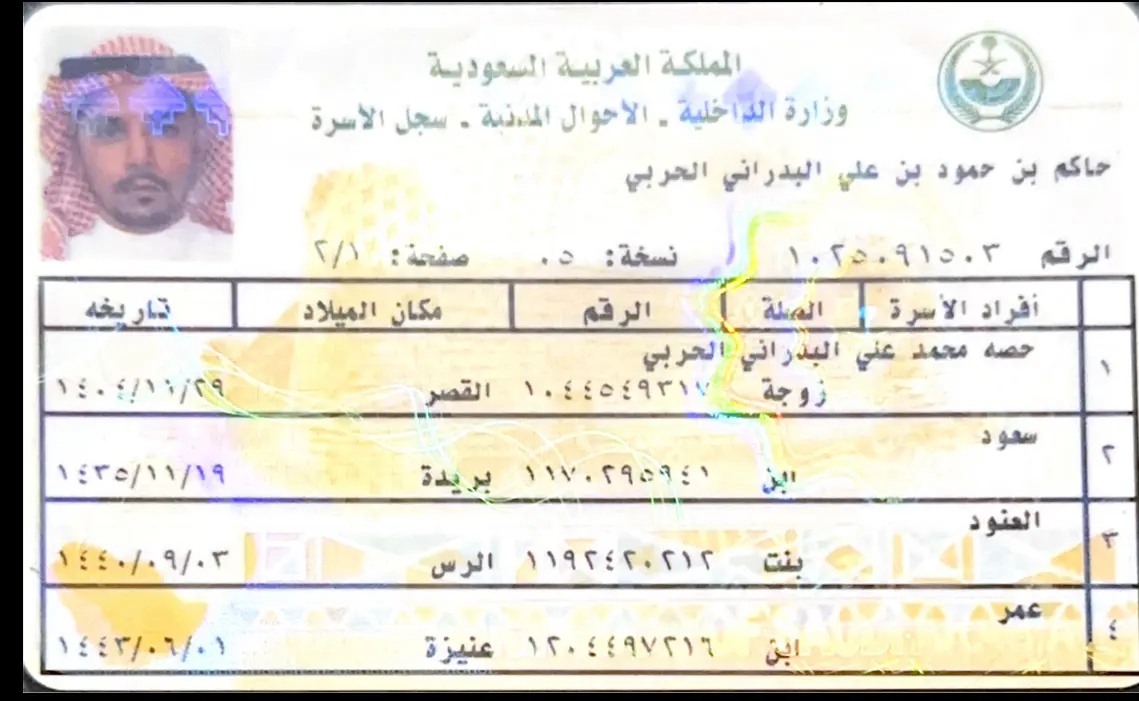 المملكة العربية السعودية
وزارة الداخلية - الأحوال المدنية - سجل الأسرة
حاكم بن حمود بن علي البدراني الحربي
الرقم ١٠٢٥٠٩١٥٠٣ نسخة: ٠٥ صفحة: ٢/١
أفراد الأسرة الصلة الرقم مكان الميلاد تاريخه
١ حصه محمد علي البدراني الحربي
زوجة ١٠٤٤٥٤٩٣١٧ القصر ١٤٠٤/١١/٢٩
٢ سعود
ابن ١١٧٠٢٩٥٩٤١ بريدة ١٤٣٥/١١/١٩
٣ العنود
بنت ١١٩٢٤٢٠٢١٢ الرس ١٤٤٠/٠٩/٠٣
٤ عمر
ابن ١٢٠٤٤٩٧٢١٦ عنيزة ١٤٤٣/٠٦/٠١